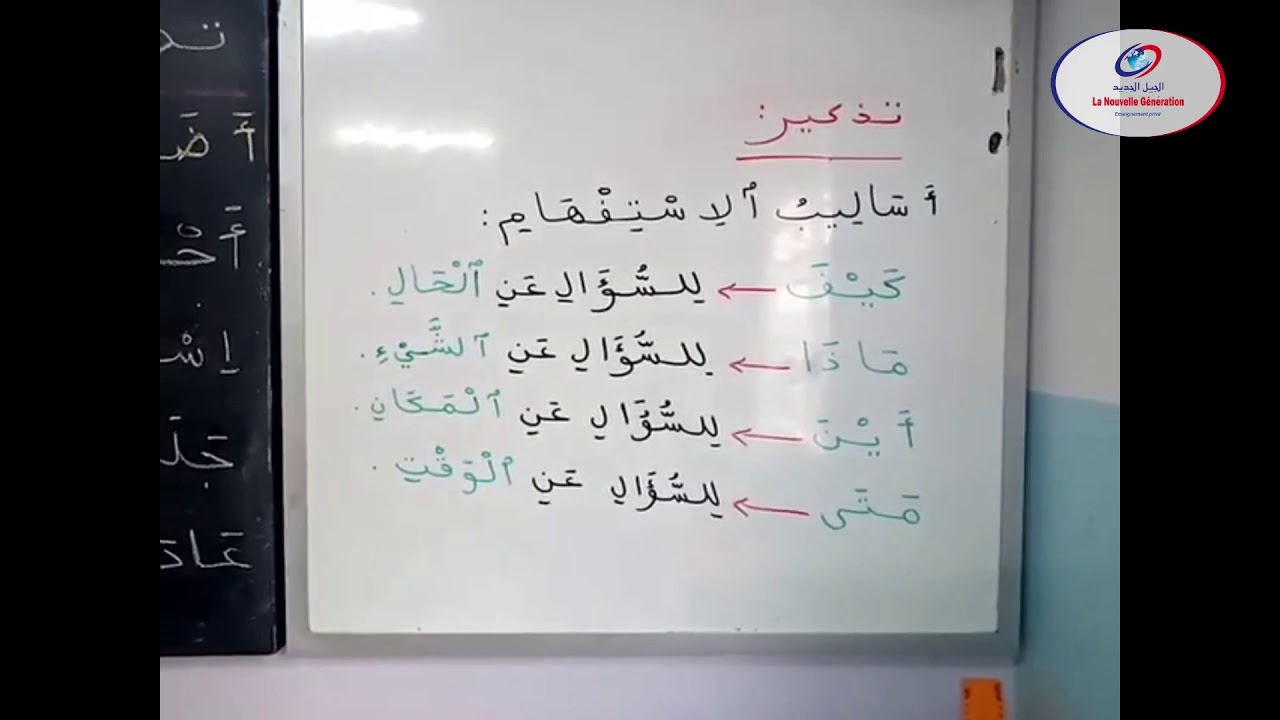 تذكير:
أَسَالِيبُ ٱلِاسْتِفْهَامِ:
كَيْفَ ← لِلسُّؤَالِ عَنِ ٱلْحَالِ.
مَاذَا ← لِلسُّؤَالِ عَنِ ٱلشَّيْءِ.
أَيْنَ ← لِلسُّؤَالِ عَنِ ٱلْمَكَانِ.
مَتَى ← لِلسُّؤَالِ عَنِ ٱلْوَقْتِ.
الجيل الجديد
La Nouvelle Génération
Enseignement privé